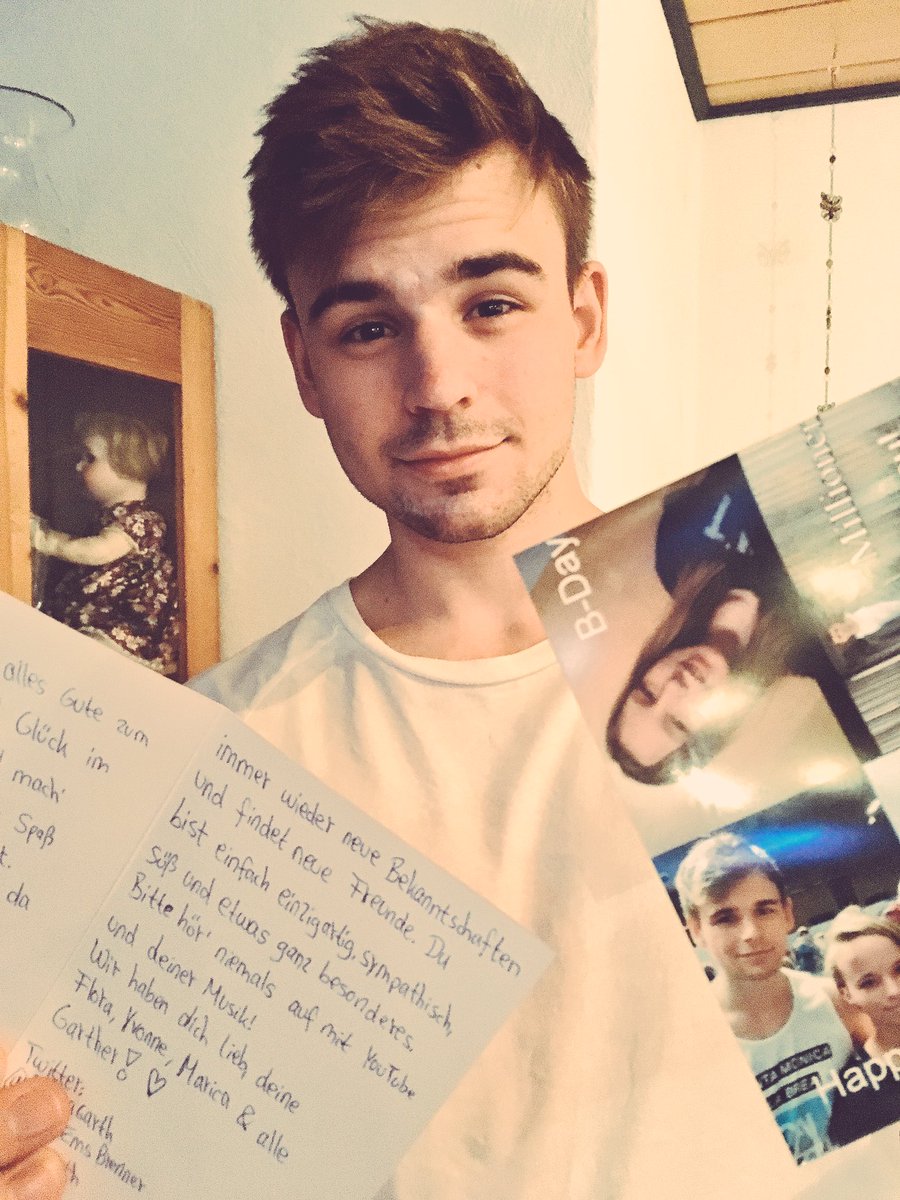 alles Gute zum
Glück im
mach'
Spaß
da
immer wieder neue Bekanntschaften
und findet neue Freunde. Du
bist einfach einzigartig, sympathisch,
süß und etwas ganz besonderes.
Bitte hör' niemals auf mit YouTube
und deiner Musik!
Wir haben dich lieb, deine
Flora, Yvonne, Marica & alle
Garther! ♡
Twitter:
Garth
Ems Brenner
B-Day
Million
TA MONICA
LA BREA
Happ